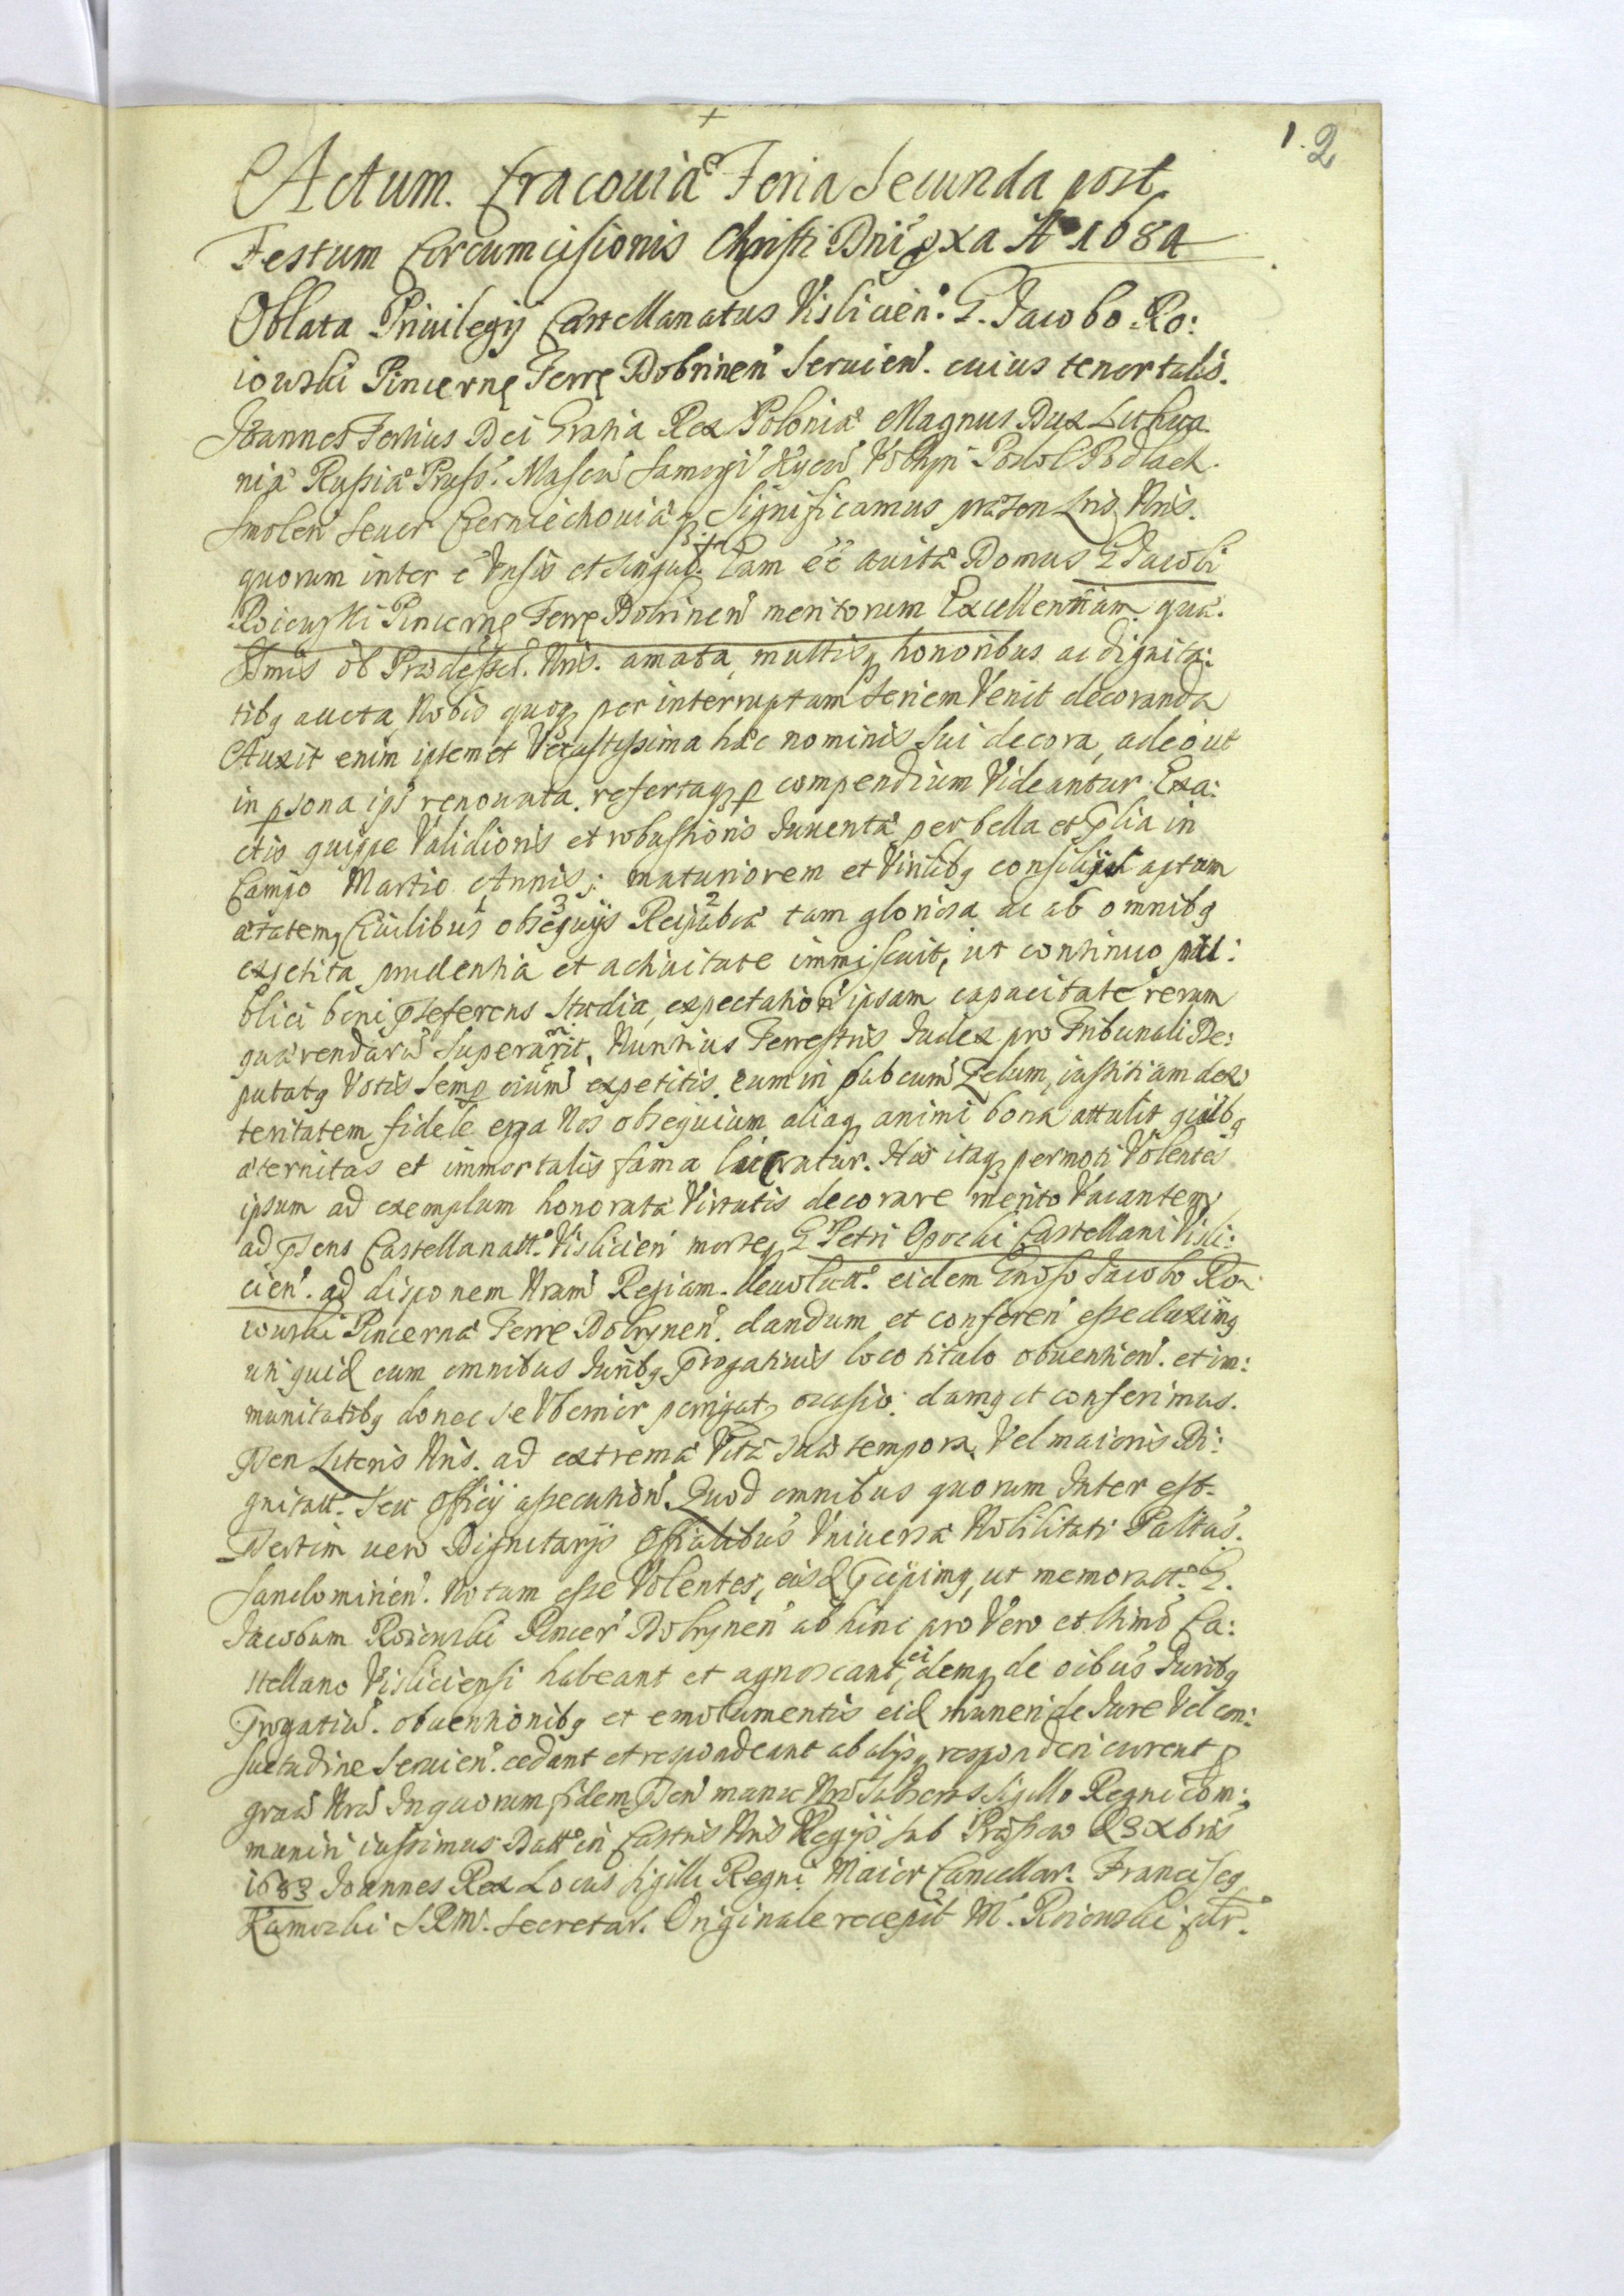 1. 2
Actum. Cracouiæ Feria Secunda post
Festum Circumcisionis Christi Dni pxa A° 1684
Oblata Priuilegij Castellanatus Vislicien. G. Jacobo Ro:
iowski Pincernę Terrę Dobrinen Seruien. cuius tenor talis.
Joannes Tertius Dei Gratia Rex Poloniæ Magnus Dux Lithua
niæ Rußiæ Pruss. Masou Samogi Kyou Volhyn Podol Podlach.
Smolen Seuer Czerniechouiæq Significamus præsen Lris Nris.
quorum inter ē Vnsis et singul. Eam ēē auitæ Domus G Jacobi
Roiewski Pincernę Terrę Dobrinen meritorum Excellentiam. quæ.
Stmis ob Prædeßor. Nris. amata, multisq honoribus ac dignita:
tibq aucta, Nobis quoq per interruptam Seriem Venit decoranda
Auxit enim ipsemet Vetustißima hæc nominis sui decora, adeo ut
in psona ips renouata. refertaq p compendium Videantur. Exa:
ctis quippe Validioris et robustioris Juuentæ per bella et plia in
Campo Martio Annis; maturiorem et Virilibq consilijs aptam
ætatem Ciuilibus obsequijs Reipubcæ tam gloriosa ac ab omnibq
expetita prudentia et actiuitate immiscuit, ut continuo pu:
blici boni pseferens Studia, expectation ipsam capacitate rerum
quærendaru Superarit, Nuntius Terrestris Judex pro Tribunali De:
putatq Votis Semp oium expetitis, eum in pubcum Zelum, iustitiam dex
teritatem, fidele erga Nos obsequium aliaq animi bona attulit quibq
æternitas et immortalis fama lucratur. His itaq permoti Volentes
ipsum ad exemplum honoratæ Virtutis decorare merito Vacantem
ad psens Castellanatt. Vislicien morte G Petri Opocki Castellani Visli:
cien. ad disponem Nram Regiam. deuolutt. eidem Gnoso Jacobo Ro
iowski Pincernæ Terrę Dobrynen. dandum et conferen esse duximq
uti quid cum omnibus Juribq, progatiuis loco titulo obuention. et im:
munitatibq donec se Vberior porrigat occasio. damq et conferimus.
psen Literis Nris. ad extrema Vitæ suæ tempora. Vel maioris Di:
gnitatt. Seu Officij assecution. Quod omnibus quorum Inter est.
psertim uero Dignitarijs Offialibus Vniuersæ Nobilitati Paltus.
Sandomirien. Notum esse Volentes, eisd pcipimq, ut memoratt. G.
Jacobum Roiowski Pincer Dobrynen ab hinc pro Vero et ltimo Ca:
stellano Visliciensi habeant et agnoscant, eidemq de oibus Juribq
progatiu. obuentionibq et emolumentis eid muneri de Jure Vel con:
suetudine Seruien. cedant et respondeant ab alijsq responderi curent p
grau Nra In quorum fidem psen manu Nra Subscrs Sigillo Regni com:
muniri iussimus. Datt in Castris Nris Regijs sub Præszow D 3 Xbris
1683 Joannes Rex Locus Sigilli Regni Maior Cancellar. Franciscq
Kamocki S R M. Secretar. Originale recepit M. Roiowski ptr.